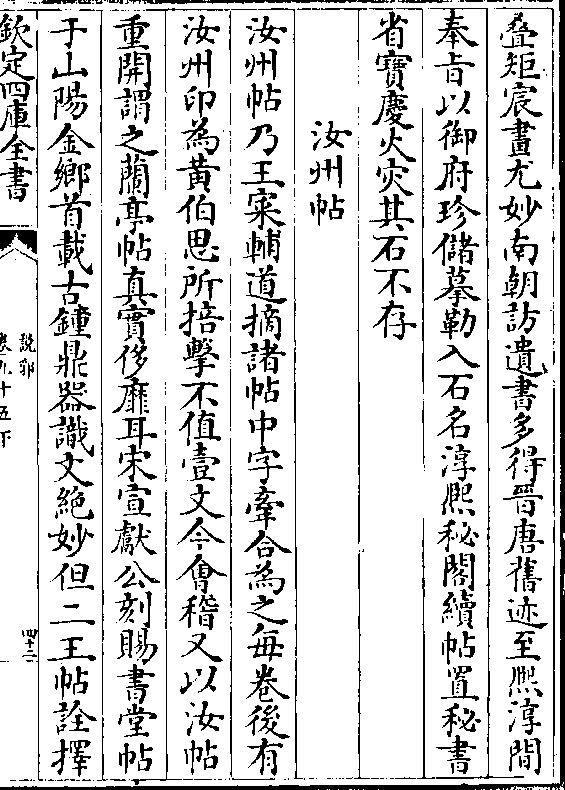 疊矩宸畫尤妙南朝訪遺書多得晉唐舊迹至熈淳間
奉㫖以御府珍儲摹勒入石名淳熈秘閣續帖置秘書
省寶慶火灾其石不存
汝州帖
汝州帖乃王寀輔道摘諸帖中字牽合為之每卷後有
汝州印為黃伯思所掊擊不值壹文今會稽又以汝帖
重開謂之蘭亭帖真實侈靡耳宋宣獻公刻賜書堂帖
于山陽金鄉首載古鍾鼎器識文絶妙但二王帖詮擇
欽定四庫全書
說郛
卷九十五下
四十三